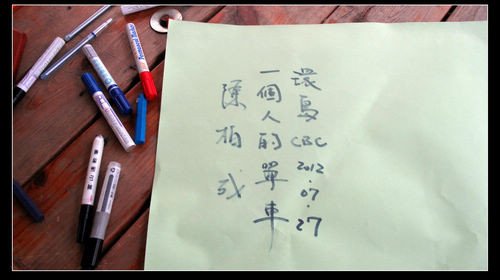 環島 CBC 2012.07.27
一個人的單車
陳柏